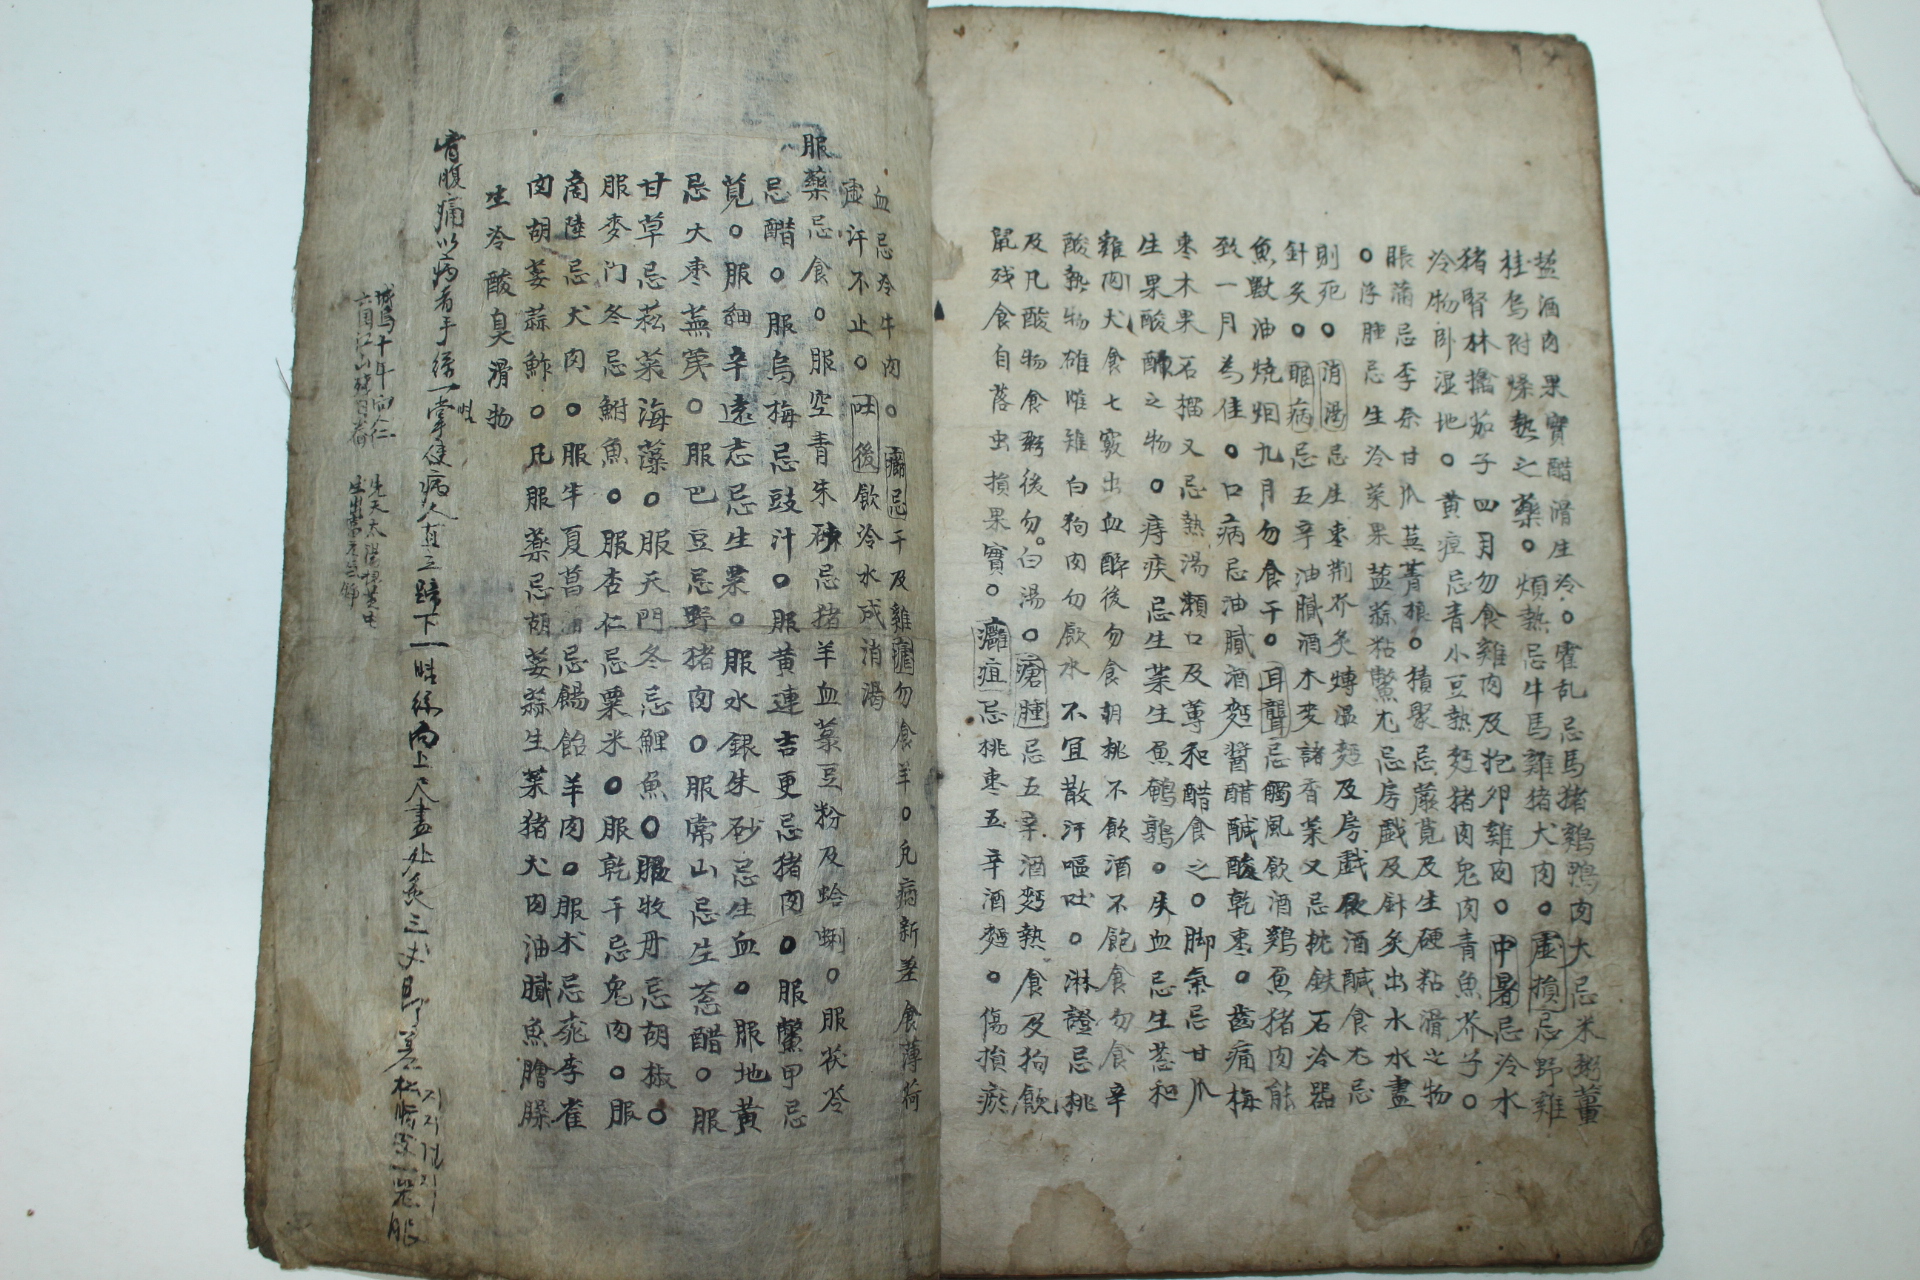 盐酒肉果實醋滑生冷○霍乱忌馬猪鷄鴨肉大忌米粥薑
桂烏附燥熱之藥○煩熱忌牛馬雞猪犬肉○虛損忌野雞
猪腎林擒茄子四月勿食雞肉及抱卵雞肉○中暑忌冷水
冷物卧湿地○黄疸忌青小豆熱麪猪肉兔肉青魚芥子○
脹滿忌李柰甘瓜蕪菁根○積聚忌蕨莧及生硬粘滑之物
○浮腫忌生冷菜果盐蒜粘鱉尤忌房戲及針灸出水水盡
則死○消渴忌生棗荆芥炙煿温麪及房戲飲酒醎食尤忌
針灸○眼病忌五辛油膩酒木麥諸香菜又忌枕鉄石冷器
魚獸油燒烟九月勿食干○耳聾忌觸風飲酒鷄魚猪肉能
致一月為佳○口病忌油膩酒麪醬醋醎酸乾棗○齒痛梅
棗木果石榴又忌熱湯瀬口及蓴和醋食之○脚氣忌甘瓜
生果酸酶之物○痔疾忌生菜生魚鵪鶉○失血忌生葱和
雞肉犬食七竅出血醉後勿食朝桃不飲酒不飽食勿食辛
酸熱物雄雌雉白狗肉勿飲水不宜散汗嘔吐○淋證忌桃
及凡酸物食粥後勿白湯○瘡腫忌五辛酒麪熱食及狗飲
鼠残食自落虫損果實○癰疽忌桃棗五辛酒麪○傷損瘀
血忌冷牛肉○癎忌干及雞瘧勿食羊○凡病新差食薄荷
虛汗不止○吐後飲冷水成消渴
服藥忌食○服空青朱砂忌猪羊血菉豆粉及蛤蜊○服茯苓
忌醋○服烏梅忌豉汁○服黄連吉更忌猪肉○服鱉甲忌
莧○服細辛遠志忌生菜○服水銀朱砂忌生血○服地黄
忌大棗蕪荑○服巴豆忌野猪肉○服常山忌生葱醋○服
甘草忌菘菜海藻○服天門冬忌鯉魚○服牧丹忌胡椒○
服麥门冬忌鮒魚○服杏仁忌粟米○服乾干忌兔肉○服
商陸忌犬肉○服半夏菖蒲忌餳飴羊肉○服朮忌桃李雀
肉胡荽蒜鮓○凡服藥忌胡荽蒜生菜猪犬肉油膩魚膾臊
生冷酸臭滑物
胷腹痛以病者手 一掌 病人直立 下一 向上尺盡处灸三丈即